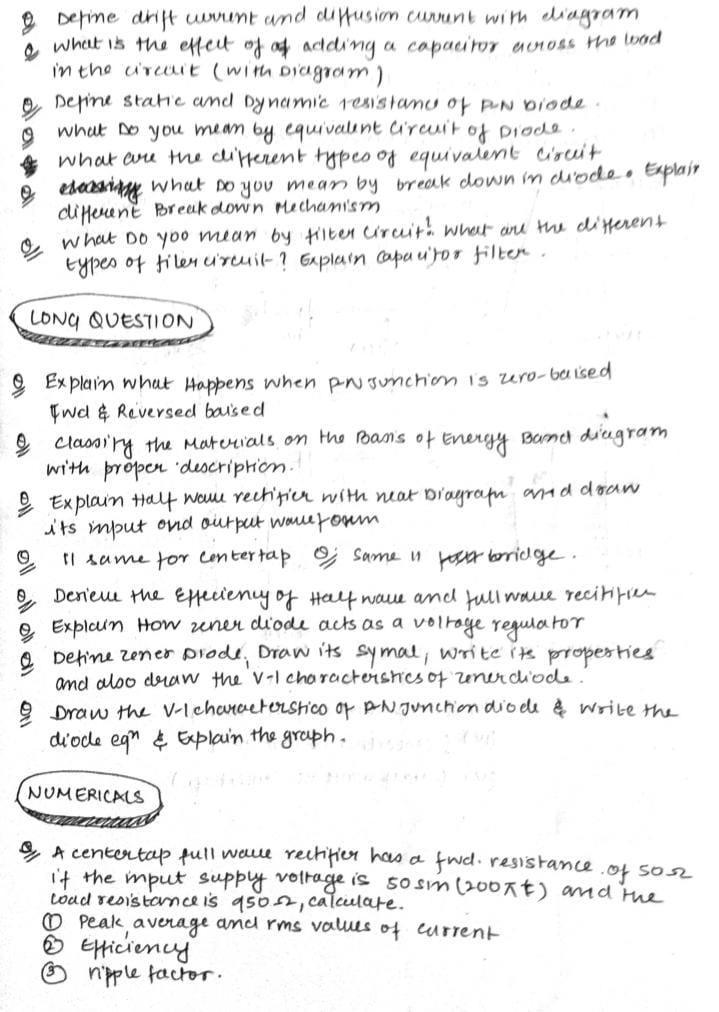 Q Define drift current and diffusion current with diagram
Q What is the effect of adding a capacitor across the load
in the circuit (with Diagram)
Q Define static and Dynamic resistance of P-N Diode.
Q What Do you mean by equivalent circuit of Diode.
What are the different types of equivalent circuit
Q What Do you mean by break down in diode. Explain
different Breakdown Mechanism
Q What DO yoo mean by filter circuit? What are the different
types of filer circuit? Explain capacitor filter.
LONG QUESTION
Q Explain what Happens when P-N Junction is zero-baised
Fwd & Reversed baised
Q Classify the Materials on the Basis of Energy Band diagram
with proper description.
Q Explain Half wave rectifier with neat Diagram and draw
its input and output waveform
Q 11 same for centertap Q; Same 11 bridge.
Q Derieve the Effeciency of Half wave and full wave recitifier
Q Explain How zener diode acts as a voltage regulator
Q Define zener Diode, Draw its symal, write its properties
and also draw the V-I characterstics of zener diode.
Q Draw the V-I characterstics of P-N Junction diode & write the
diode eqn & Explain the graph.
NUMERICALS
Q A centertap full wave rectifier has a fwd. resistance of 50Ω
if the input supply voltage is 50 sin (200πt) and the
load resistance is 950Ω, calculate.
① Peak, average and rms values of current
② Efficiency
③ ripple factor.